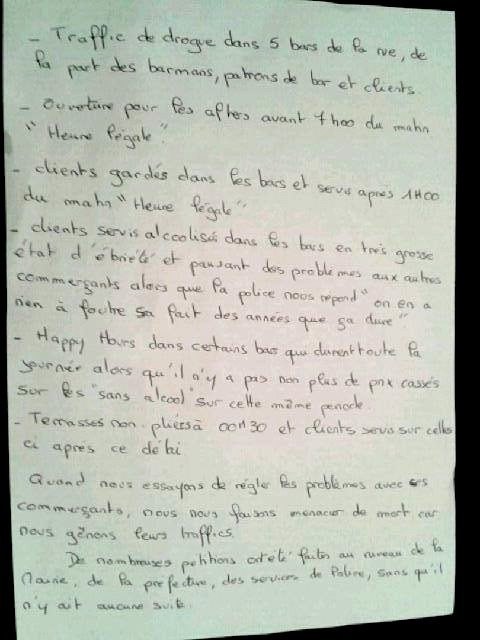 - Traffic de drogue dans 5 bars de la rue, de
la part des barmans, patrons de bar et clients.
- Ouverture pour les afters avant 7h00 du matin
"Heure légale".
- clients gardés dans les bars et servis après 1H00
du matin "Heure légale"
- clients servis alcoolisés dans les bars en très grosse
état d'ébriété et pausant des problèmes aux autres
commerçants alors que la police nous répond "on en a
rien à foutre sa fait des années que ça dure"
- Happy Hours dans certains bar qui durent toute la
journée alors qu'il n'y a pas non plus de prix cassés
sur les "sans alcool" sur cette même période
- Terrasses non pliers à 00H30 et clients servis sur celles
ci après ce délai
Quand nous essayons de régler les problèmes avec ces
commerçants, nous nous faisons menacer de mort car
nous gênons leurs traffics.
De nombreuses petitions ont été faites au niveau de la
Mairie, de la préfecture, des services de Police, sans qu'il
n'y ait aucune suite.